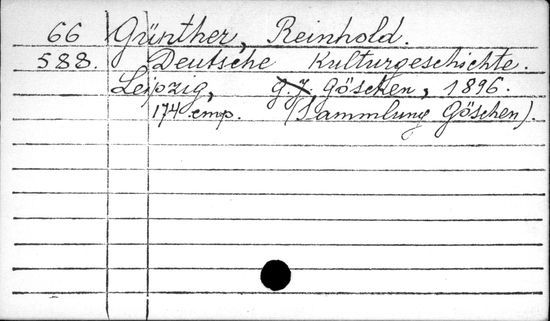 66 Günther, Reinhold.
588. Deutsche Kulturgeschichte.
Leipzig, G. J. Göschen, 1896.
174 стр. (Sammlung Göschen).